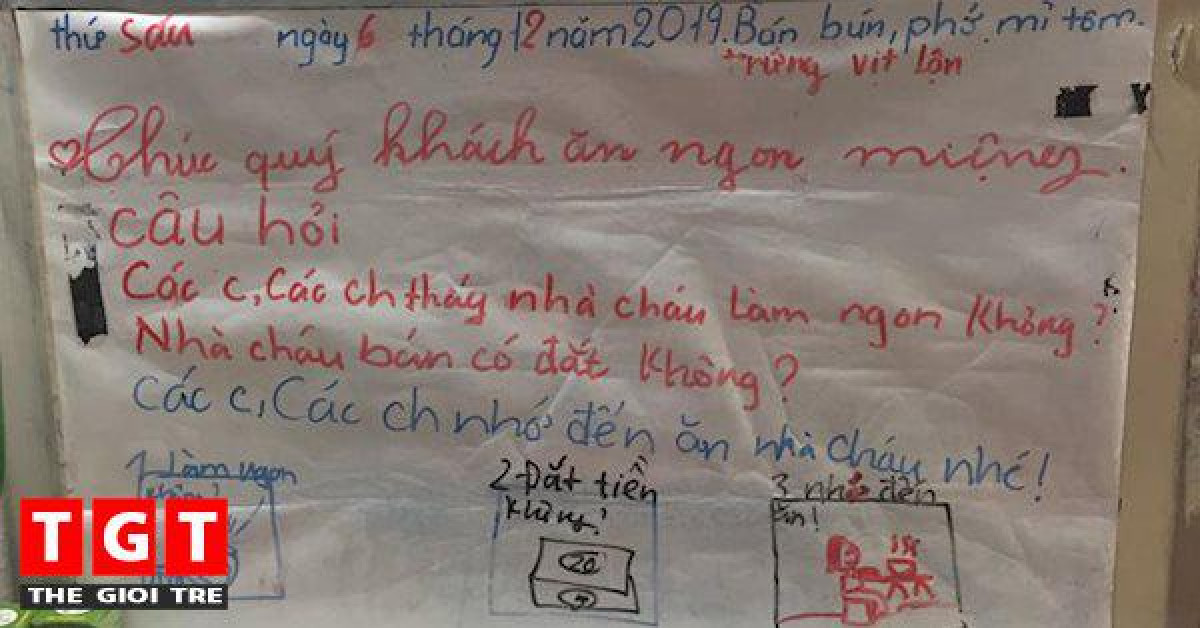 thứ sáu ngày 6 tháng 12 năm 2019. Bán bún, phở, mì tôm.
trứng vịt lộn
Chúc quý khách ăn ngon miệng.
câu hỏi
Các c, Các ch tháy nhà cháu làm ngon không?
Nhà cháu bán có đắt không?
Các c, Các ch nhớ đến ăn nhà cháu nhé!
1 Làm ngon
không?
2 Đắt tiền
không?
3 nhớ đến
ăn!
20
TGT
THE GIOI TRE